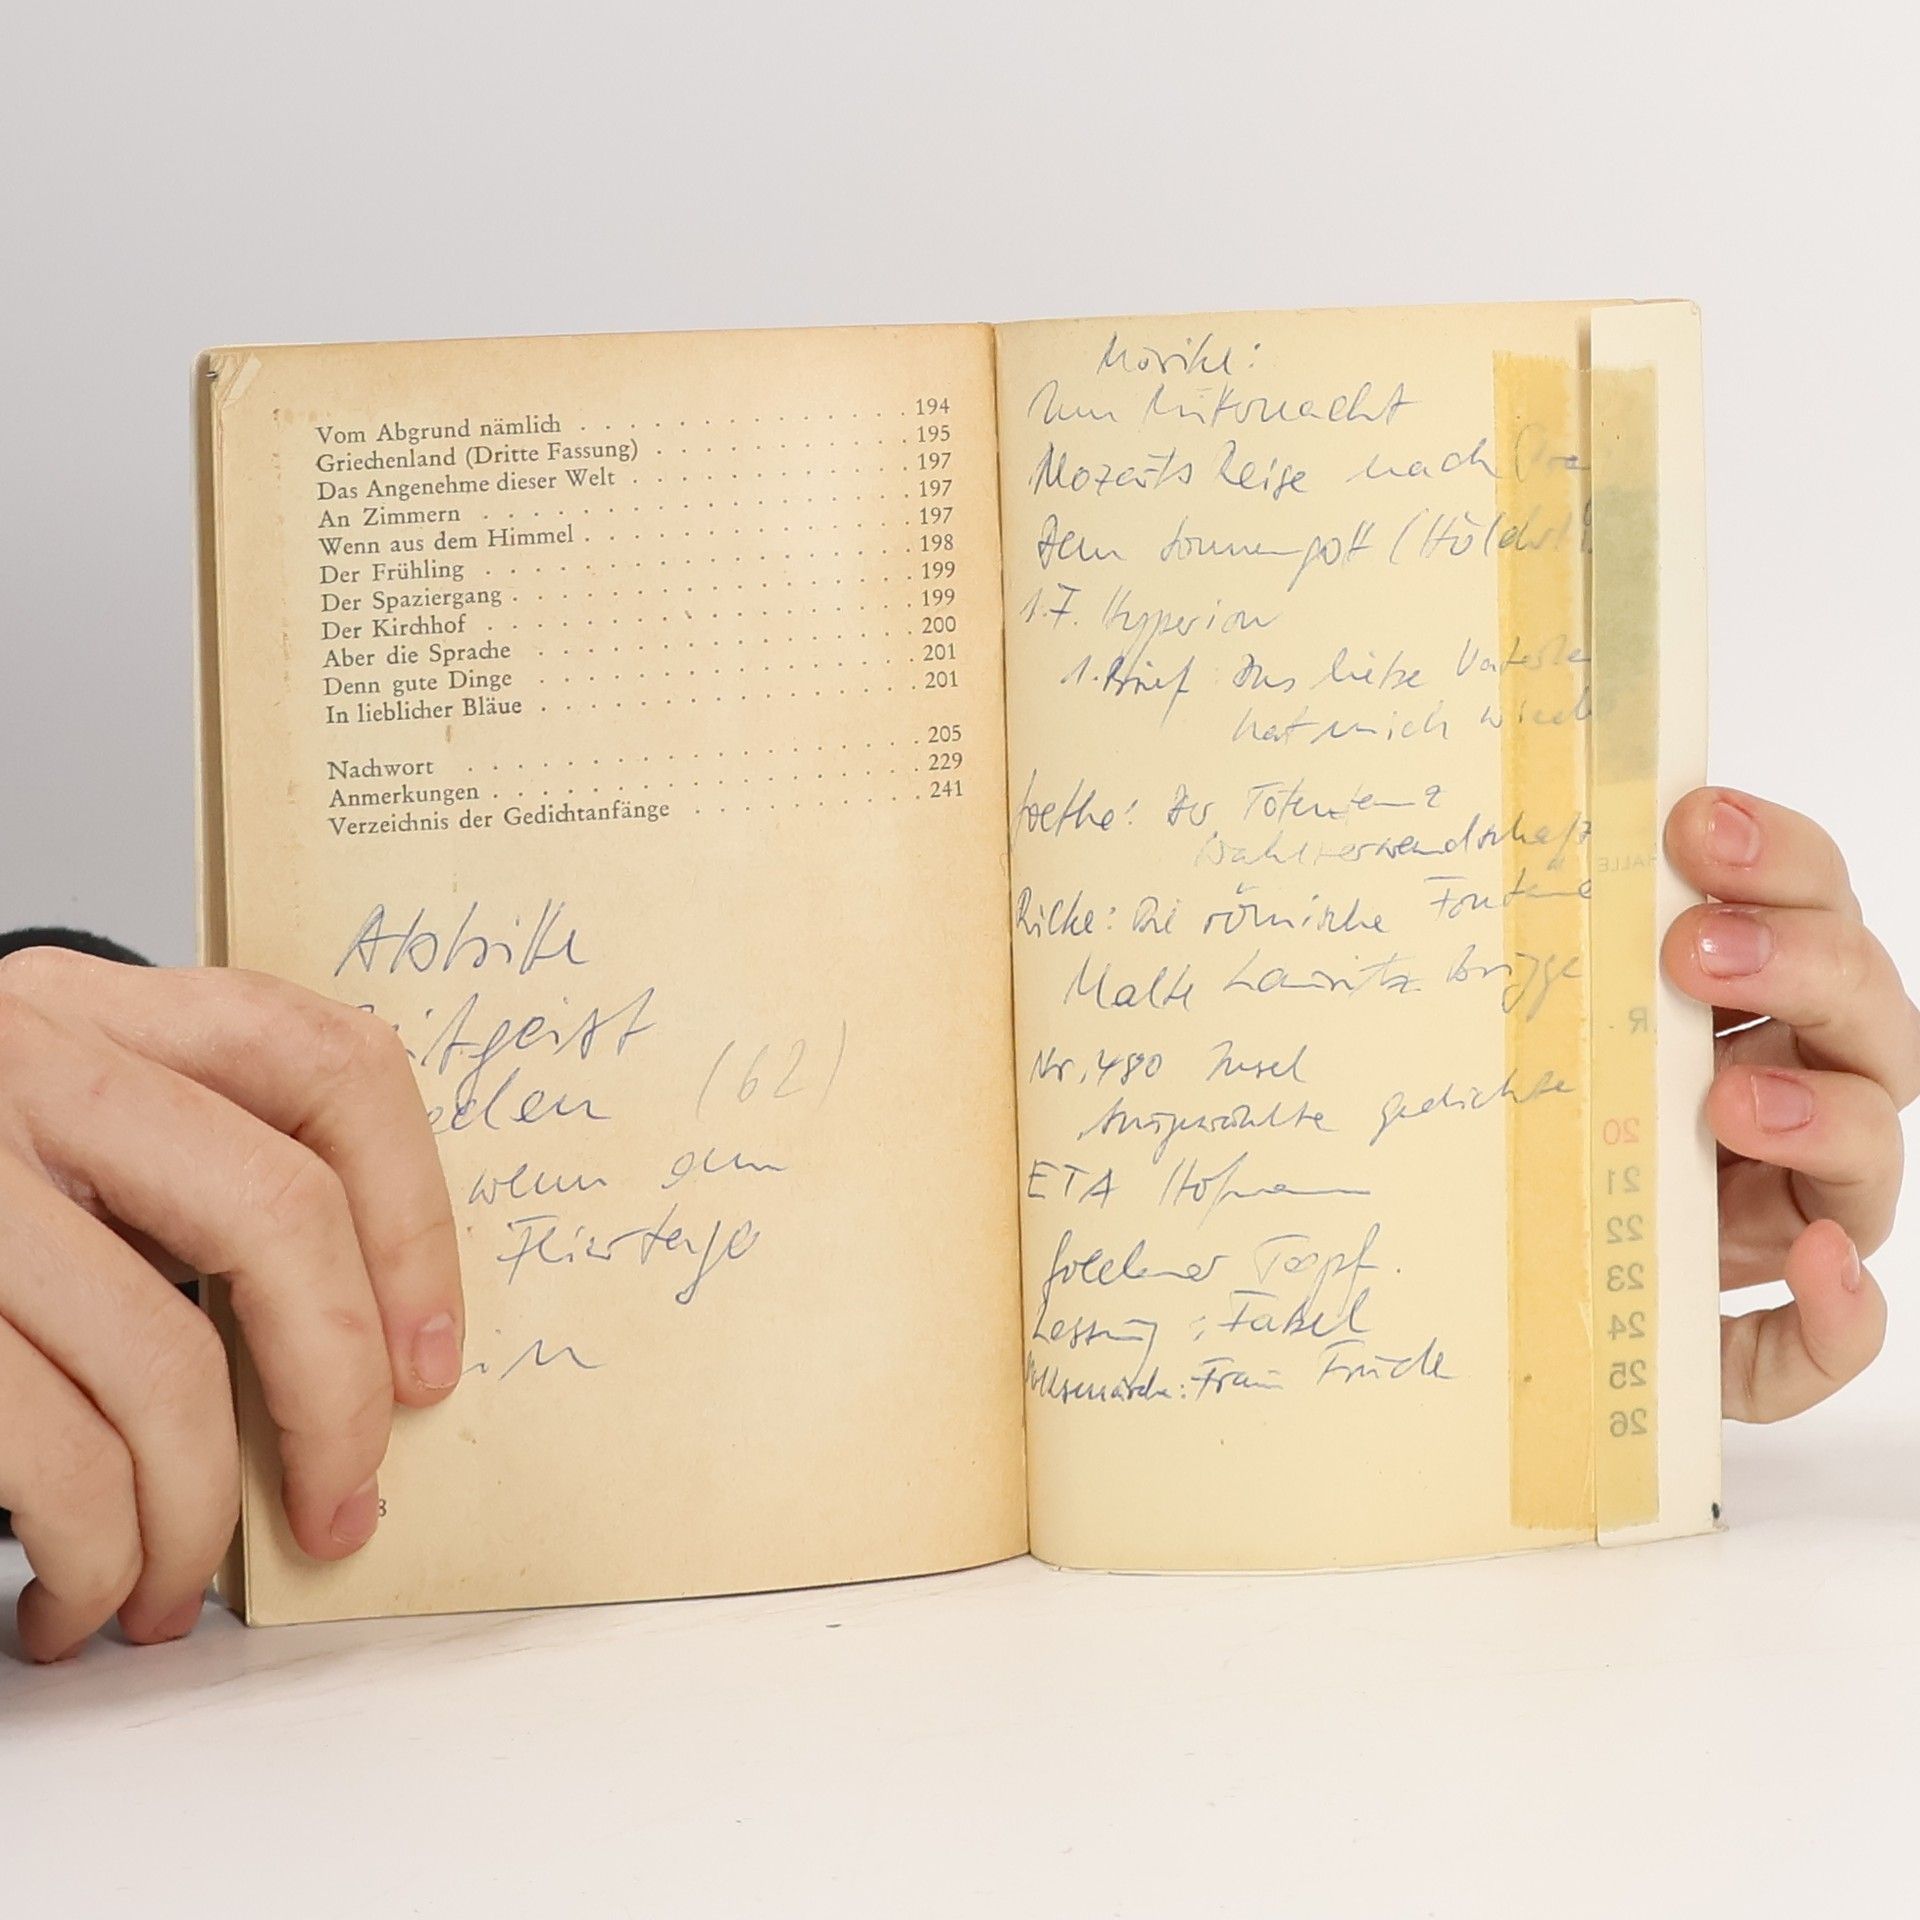 Vom Abgrund nämlich . . . . . . . . . . . . 194
Griechenland (Dritte Fassung) . . . . . . . . . . 195
Das Angenehme dieser Welt . . . . . . . . . . . 197
An Zimmern . . . . . . . . . . . . . . . . 197
Wenn aus dem Himmel . . . . . . . . . . . . 197
Der Frühling . . . . . . . . . . . . . . . . 198
Der Spaziergang . . . . . . . . . . . . . . . 199
Der Kirchhof . . . . . . . . . . . . . . . . 199
Aber die Sprache . . . . . . . . . . . . . . 200
Denn gute Dinge . . . . . . . . . . . . . . 201
In lieblicher Bläue . . . . . . . . . . . . . . 201
Nachwort . . . . . . . . . . . . . . . . . 205
Anmerkungen . . . . . . . . . . . . . . . . 229
Verzeichnis der Gedichtanfänge . . . . . . . . . 241
(62)
wenn am
Mörike:
Um Mitternacht
Mozarts Reise nach
Dem Sonnengott (Hölderl
1.F. Hyperion
1. Brief Das liebe
hat mich
Goethe: Der Totentanz
Wahlverwandschaft
Rilke: Die römische Fontäne
Malte Lauritz Brigge
Nr. 480 Insel
Ausgewählte Gedichte
ETA Hofmann
Goldener Topf.
Lessing: Fabel
Volksmärch.: Frau
HALLE
R.
20
21
22
23
24
25
26